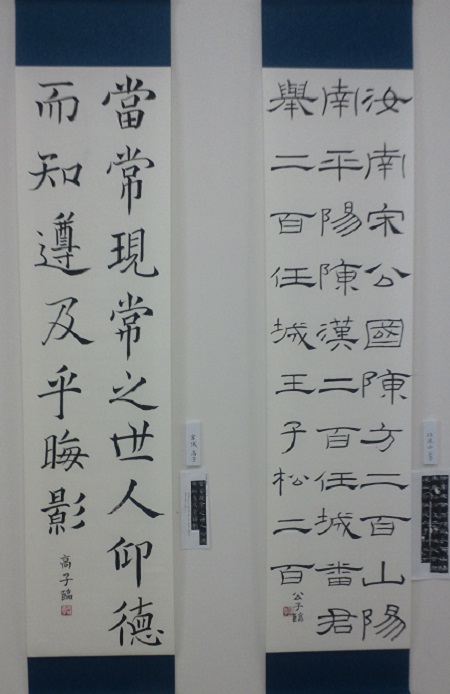 汝南宋公國陳方二百山陽
南平陽陳漢二百任城番君
舉二百任城王子松二百
當常現常之世人仰德
而知遵及乎晦影
高子臨